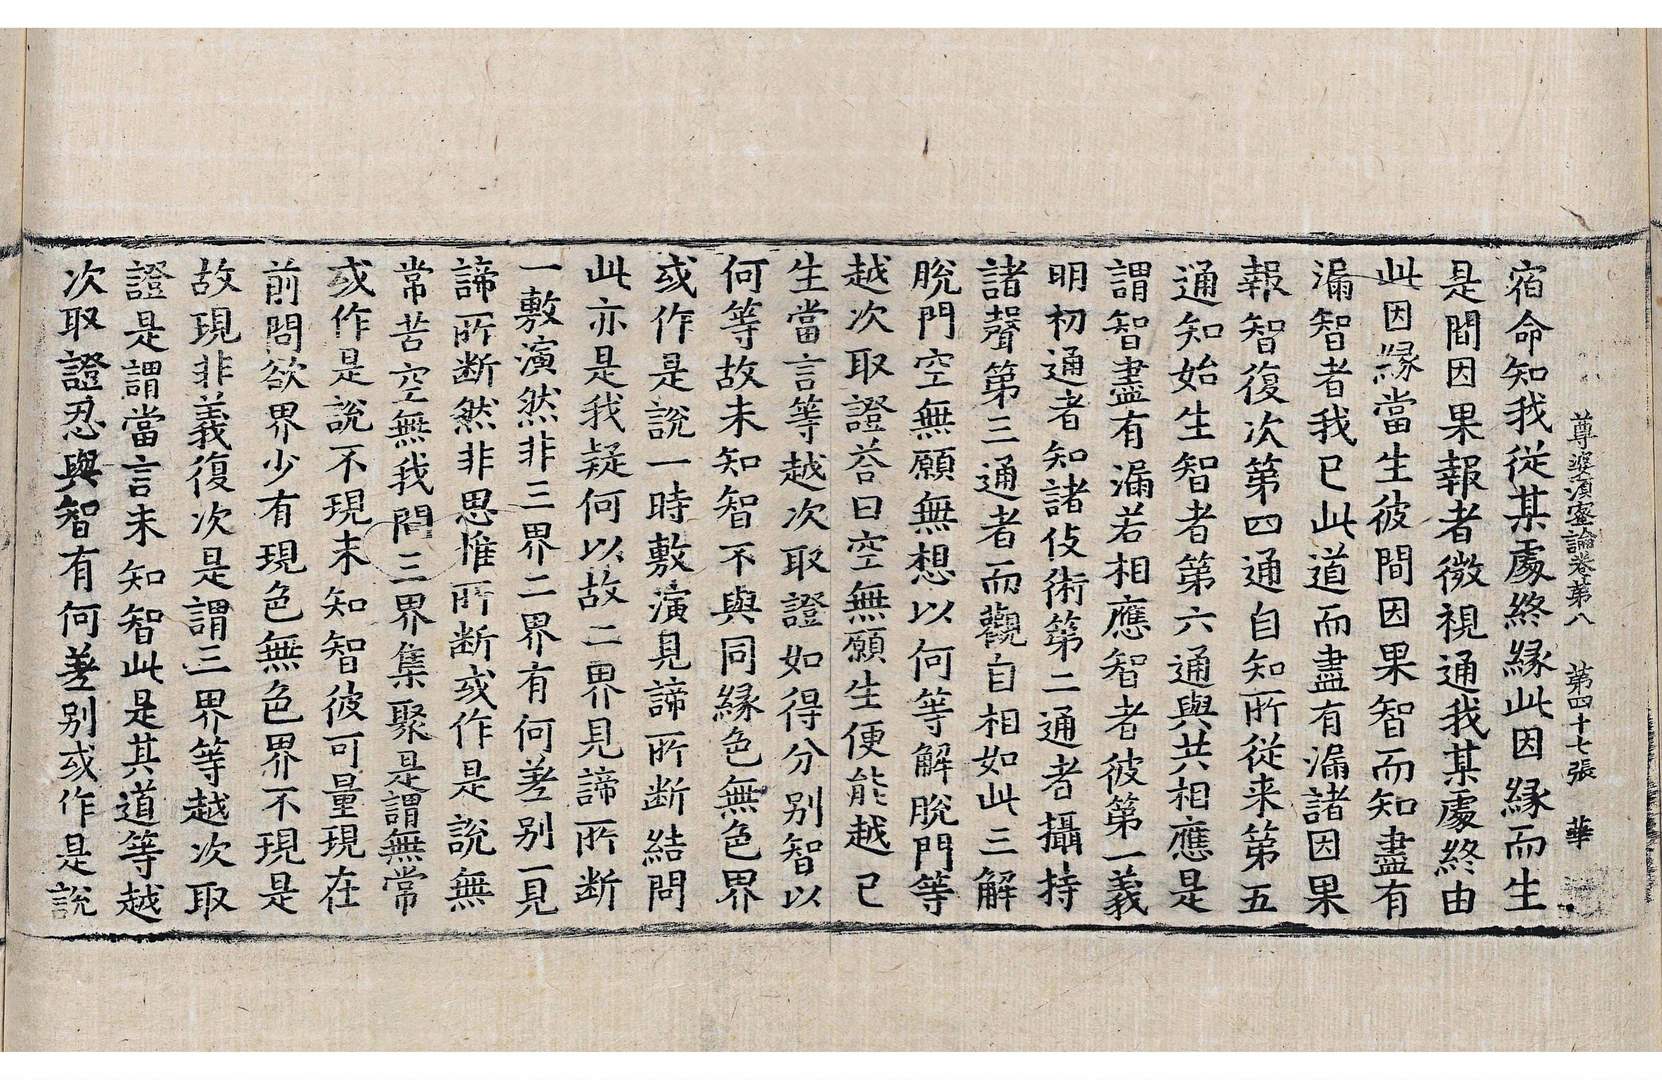 尊婆湏蜜論卷第八 第四十七張 華
宿命知我從某處終縁此因縁而生
是間因果報者微視通我某處終由
此因縁當生彼間因果智而知盡有
漏智者我已此道而盡有漏諸因果
報智復次第四通自知所從来第五
通知始生智者第六通與共相應是
謂智盡有漏若相應智者彼第一義
明初通者知諸伎術第二通者攝持
諸聲第三通者而觀自相如此三解
脫門空無願無想以何等解脫門等
越次取證荅曰空無願生便能越已
生當言等越次取證如得分别智以
何等故未知智不與同縁色無色界
或作是說一時敷演見諦所断結問
此亦是我疑何以故二界見諦所断
一敷演然非三界二界有何差别見
諦所断然非思惟所断或作是說無
常苦空無我問三界集聚是謂無常
或作是說不現未知智彼可量現在
前問欲界少有現色無色界不現是
故現非義復次是謂三界等越次取
證是謂當言未知智此是其道等越
次取證忍與智有何差别或作是說